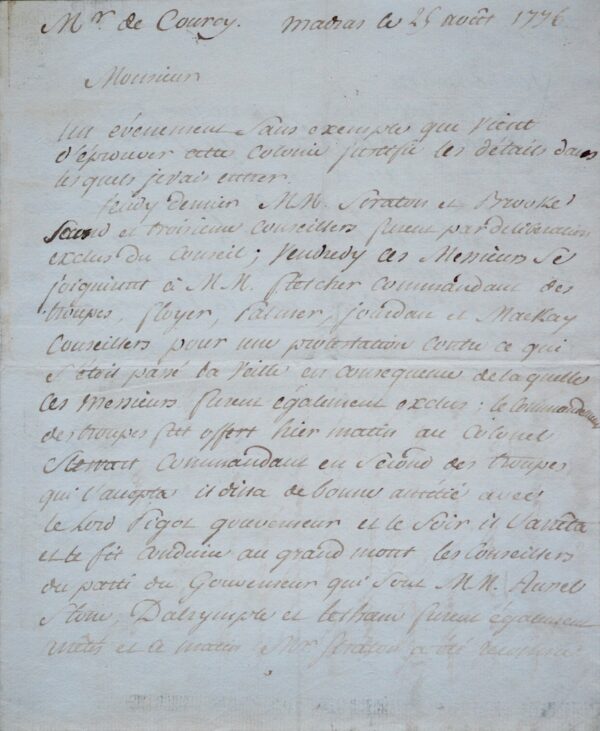 Mr. de Courcy. Madras le 25 août 1776
Monsieur
Un évenement sans exemple que vient
d'éprouver cette Colonie justifie les détails dans
lesquels je vais entrer.
Jeudy dernier MM. Straton et Brooke
Second et troisieme Conseillers furent par deliberation
exclus du Conseil; Vendredy ces Messieurs se
joignirent à MM. Fletcher Commandant des
troupes, Floyer, Palmer, Jourdan et Mackay
Conseillers pour une protestation contre ce qui
s'étoit passé la veille en consequence de laquelle
ces Messieurs furent également exclus; le Commandement
des troupes fut offert hier matin au Colonel
Stewart Commandant en Second des troupes
qui l'accepta il dina de bonne amitié avec
le Lord Pigot gouverneur et le Soir il l'arrêta
et le fit conduire au grand mont les Conseillers
du parti du Gouverneur qui sont MM.
Stone, Dalrymple et furent également
et ce matin Mr Straton a été reconnu